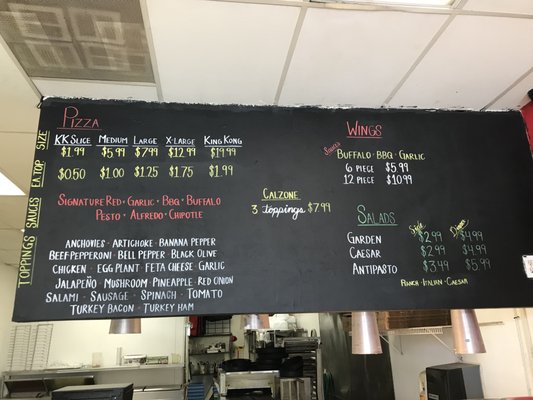 PIZZA
KK SLICE MEDIUM LARGE X-LARGE KING KONG
SIZE $1.99 $5.99 $7.99 $12.99 $19.99
EA TOP $0.50 $1.00 $1.25 $1.75 $1.99
SAUCES
SIGNATURE RED · GARLIC · BBQ · BUFFALO
PESTO · ALFREDO · CHIPOTLE
TOPPINGS
ANCHOVIES · ARTICHOKE · BANANA PEPPER
BEEF PEPPERONI · BELL PEPPER · BLACK OLIVE
CHICKEN · EGG PLANT · FETA CHEESE · GARLIC
JALAPEÑO · MUSHROOM · PINEAPPLE · RED ONION
SALAMI · SAUSAGE · SPINACH · TOMATO
TURKEY BACON · TURKEY HAM
CALZONE
3 toppings $7.99
WINGS
SAUCES
BUFFALO · BBQ · GARLIC
6 PIECE $5.99
12 PIECE $10.99
SALADS
GARDEN $2.99 $4.99
CAESAR $2.99 $4.99
ANTIPASTO $3.49 $5.99
RANCH · ITALIAN · CAESAR